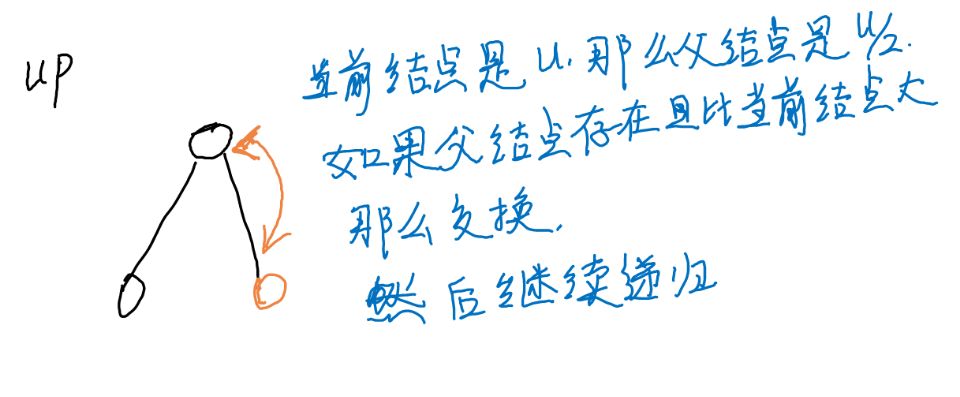 up
当前结点是u,那么父结点是u/2.
如果父结点存在且比当前结点大
那么交换,
然后继续递归